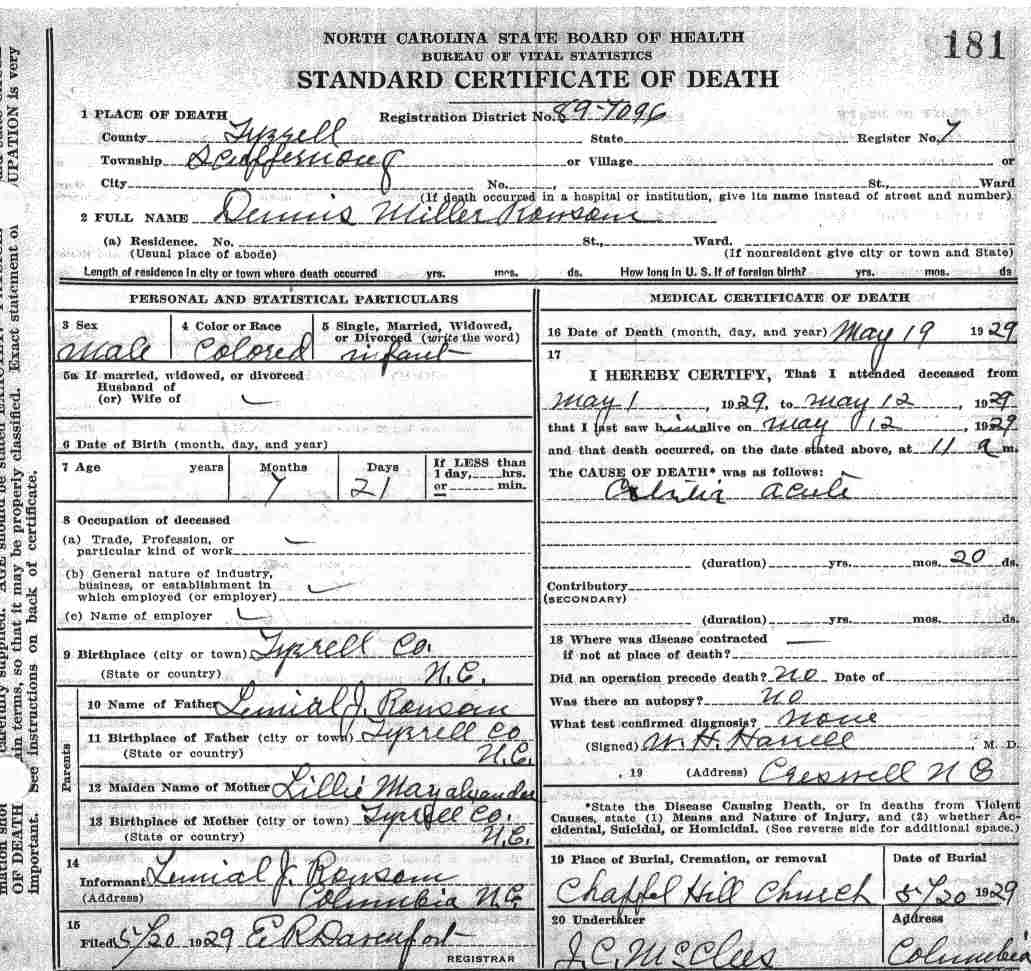 NORTH CAROLINA STATE BOARD OF HEALTH
BUREAU OF VITAL STATISTICS
STANDARD CERTIFICATE OF DEATH
181
1 PLACE OF DEATH
Registration District No. 89-7096
County Tyrrell State Register No. 7
Township Scuppernong or Village or
City No. , St., Ward
(If death occurred in a hospital or institution, give its name instead of street and number)
2 FULL NAME Dennis Miller Ransom
(a) Residence. No. St., Ward.
(Usual place of abode) (If nonresident give city or town and State)
Length of residence in city or town where death occurred yrs. mos. ds. How long in U. S. if of foreign birth? yrs. mos. ds
PERSONAL AND STATISTICAL PARTICULARS
3 Sex
Male
4 Color or Race
Colored
5 Single, Married, Widowed,
or Divorced (write the word)
infant
5a If married, widowed, or divorced
Husband of
(or) Wife of
6 Date of Birth (month, day, and year)
7 Age years Months Days If LESS than
1 day, hrs.
or min.
7 21
8 Occupation of deceased
(a) Trade, Profession, or
particular kind of work
(b) General nature of industry,
business, or establishment in
which employed (or employer)
(c) Name of employer
9 Birthplace (city or town) Tyrrell Co.
(State or country) N.C.
Parents
10 Name of Father Lemial J. Ransom
11 Birthplace of Father (city or town) Tyrrell Co
(State or country) N.C.
12 Maiden Name of Mother Lillie May alexander
13 Birthplace of Mother (city or town) Tyrrell Co.
(State or country) N.C.
14
Informant Lemial J. Ransom
(Address) Columbia N.C
15
Filed 5/20 1929 E R Davenport
REGISTRAR
MEDICAL CERTIFICATE OF DEATH
16 Date of Death (month, day, and year) May 19 1929
17
I HEREBY CERTIFY, That I attended deceased from
May 1, 1929, to May 12, 1929
that I last saw him alive on May 12, 1929
and that death occurred, on the date stated above, at 11 a m.
The CAUSE OF DEATH* was as follows:
acute
(duration) yrs. mos. 20 ds.
Contributory
(SECONDARY)
(duration) yrs. mos. ds.
18 Where was disease contracted
if not at place of death?
Did an operation precede death? No Date of
Was there an autopsy? No
What test confirmed diagnosis? None
(Signed) W. H. Harrell, M. D.
, 19 (Address) Creswell N C
*State the Disease Causing Death, or in deaths from Violent
Causes, state (1) Means and Nature of Injury, and (2) whether Ac-
cidental, Suicidal, or Homicidal. (See reverse side for additional space.)
19 Place of Burial, Cremation, or removal
Chappel Hill Church
Date of Burial
5/20 1929
20 Undertaker
J. C. McClees
Address
Columbia
UPATION is very
Exact statement of
ain terms, so that it may be properly classified.
OF DEATH
Important. See instructions on back of certificate.